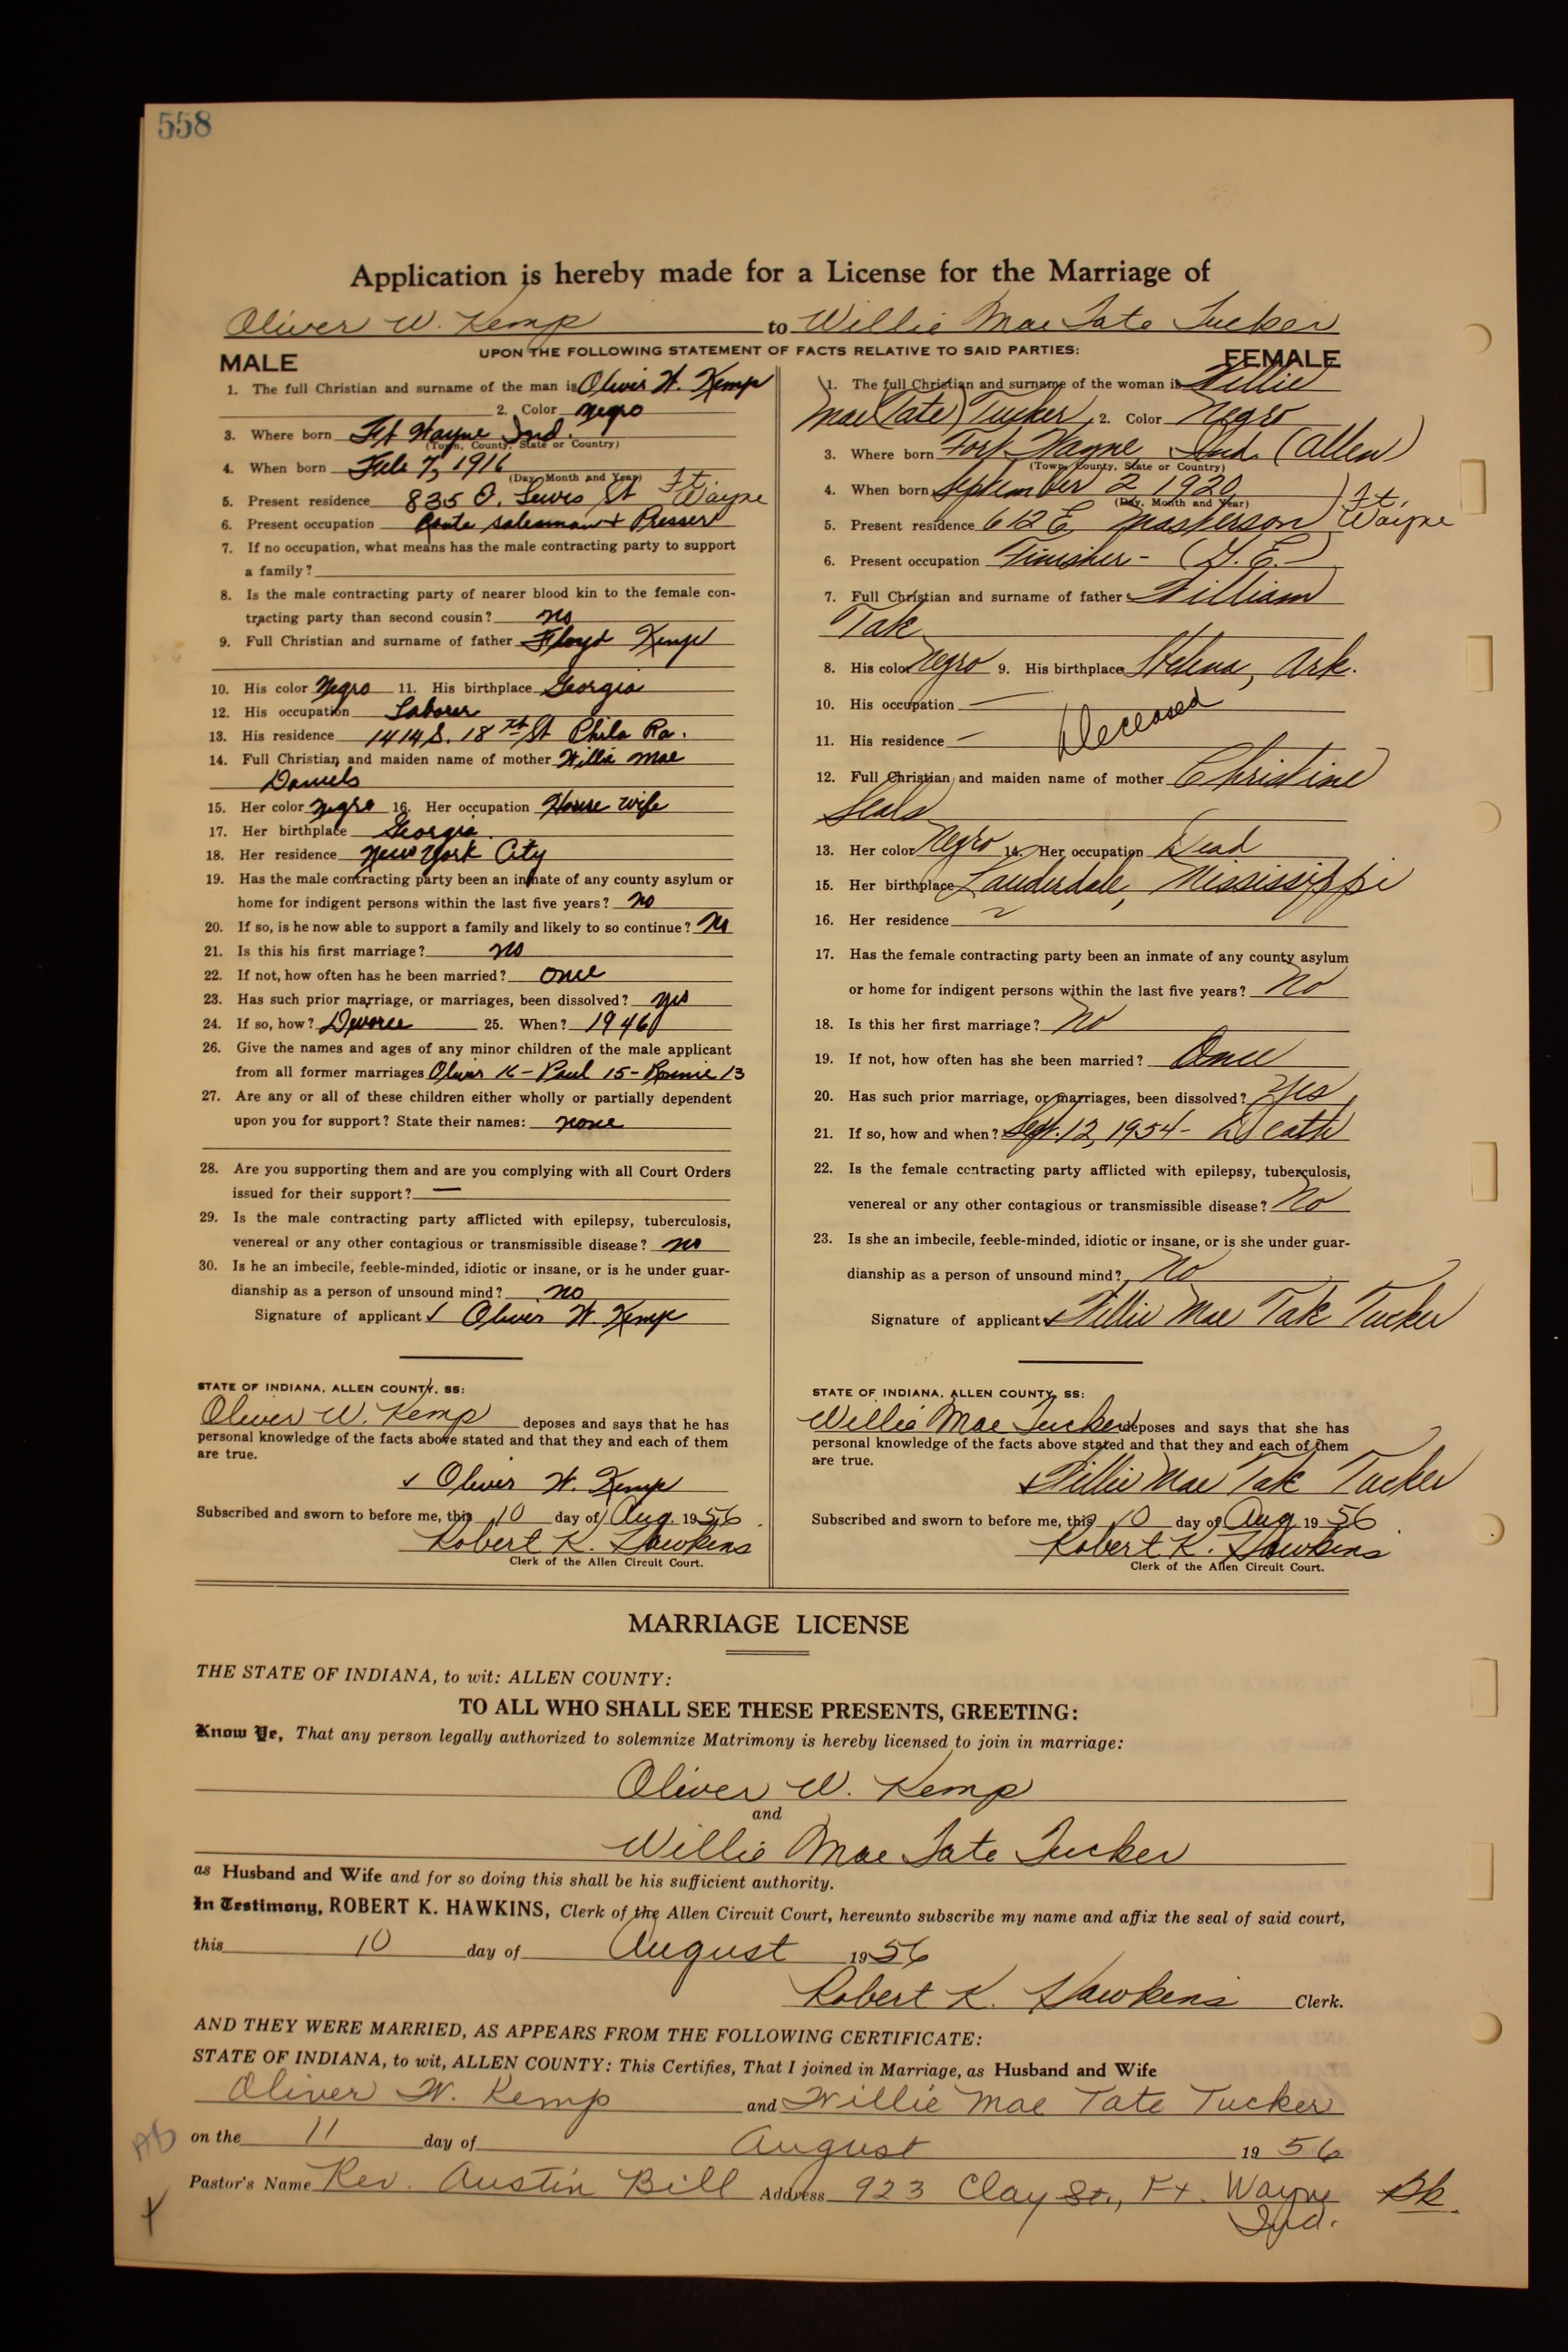 558
Application is hereby made for a License for the Marriage of
Oliver W. Kemp to Willie Mae Tate Tucker
UPON THE FOLLOWING STATEMENT OF FACTS RELATIVE TO SAID PARTIES:
MALE
1. The full Christian and surname of the man is Oliver W. Kemp
2. Color Negro
3. Where born Ft Wayne Ind.
(Town, County, State or Country)
4. When born 7, 1916
(Day, Month and Year)
5. Present residence 835 Lewis St Ft. Wayne
6. Present occupation Route salesman + Presser
7. If no occupation, what means has the male contracting party to support
a family?
8. Is the male contracting party of nearer blood kin to the female con-
tracting party than second cousin? no
9. Full Christian and surname of father Floyd Kemp
10. His color Negro 11. His birthplace Georgia
12. His occupation Laborer
13. His residence 1414 S. 18th St Phila Pa.
14. Full Christian and maiden name of mother Willie Mae
Daniels
15. Her color negro 16. Her occupation House wife
17. Her birthplace Georgia
18. Her residence New York City
19. Has the male contracting party been an inmate of any county asylum or
home for indigent persons within the last five years? no
20. If so, is he now able to support a family and likely to so continue?
21. Is this his first marriage? no
22. If not, how often has he been married? once
23. Has such prior marriage, or marriages, been dissolved? yes
24. If so, how? Divorce 25. When? 1946
26. Give the names and ages of any minor children of the male applicant
from all former marriages Oliver 16 - Paul 15 - Ronnie 13
27. Are any or all of these children either wholly or partially dependent
upon you for support? State their names: none
28. Are you supporting them and are you complying with all Court Orders
issued for their support? —
29. Is the male contracting party afflicted with epilepsy, tuberculosis,
venereal or any other contagious or transmissible disease? no
30. Is he an imbecile, feeble-minded, idiotic or insane, or is he under guar-
dianship as a person of unsound mind? no
Signature of applicant Oliver W. Kemp
STATE OF INDIANA, ALLEN COUNTY, SS:
Oliver W. Kemp deposes and says that he has
personal knowledge of the facts above stated and that they and each of them
are true.
Oliver W. Kemp
Subscribed and sworn to before me, this 10 day of Aug. 1956
Robert K. Hawkins
Clerk of the Allen Circuit Court.
FEMALE
1. The full Christian and surname of the woman is Willie
Mae (Tate) Tucker 2. Color Negro
3. Where born Fort Wayne, Ind. (Allen)
(Town, County, State or Country)
4. When born September 2 1920
(Day, Month and Year)
5. Present residence 612 E. Masterson Ft. Wayne
6. Present occupation Finisher - (G. E.)
7. Full Christian and surname of father William
Tate
8. His color Negro 9. His birthplace Helena, Ark.
10. His occupation —
Deceased
11. His residence —
12. Full Christian and maiden name of mother Christine
Seals
13. Her color Negro 14. Her occupation Dead
15. Her birthplace Lauderdale, Mississippi
16. Her residence
17. Has the female contracting party been an inmate of any county asylum
or home for indigent persons within the last five years? No
18. Is this her first marriage? No
19. If not, how often has she been married? Once
20. Has such prior marriage, or marriages, been dissolved? Yes
21. If so, how and when? Sept. 12, 1954 - Death
22. Is the female contracting party afflicted with epilepsy, tuberculosis,
venereal or any other contagious or transmissible disease? No
23. Is she an imbecile, feeble-minded, idiotic or insane, or is she under guar-
dianship as a person of unsound mind? No
Signature of applicant Willie Mae Tate Tucker
STATE OF INDIANA, ALLEN COUNTY, SS:
Willie Mae Tucker deposes and says that she has
personal knowledge of the facts above stated and that they and each of them
are true.
Willie Mae Tate Tucker
Subscribed and sworn to before me, this 10 day of Aug 1956
Robert K. Hawkins
Clerk of the Allen Circuit Court.
MARRIAGE LICENSE
THE STATE OF INDIANA, to wit: ALLEN COUNTY:
TO ALL WHO SHALL SEE THESE PRESENTS, GREETING:
Know Ye, That any person legally authorized to solemnize Matrimony is hereby licensed to join in marriage:
Oliver W. Kemp
and
Willie Mae Tate Tucker
as Husband and Wife and for so doing this shall be his sufficient authority.
In Testimony, ROBERT K. HAWKINS, Clerk of the Allen Circuit Court, hereunto subscribe my name and affix the seal of said court,
this 10 day of August 1956
Robert K. Hawkins Clerk.
AND THEY WERE MARRIED, AS APPEARS FROM THE FOLLOWING CERTIFICATE:
STATE OF INDIANA, to wit, ALLEN COUNTY: This Certifies, That I joined in Marriage, as Husband and Wife
Oliver W. Kemp and Willie Mae Tate Tucker
on the 11 day of August 1956
Pastor's Name Rev. Austin Bill Address 923 Clay St., Ft. Wayne
Ind.